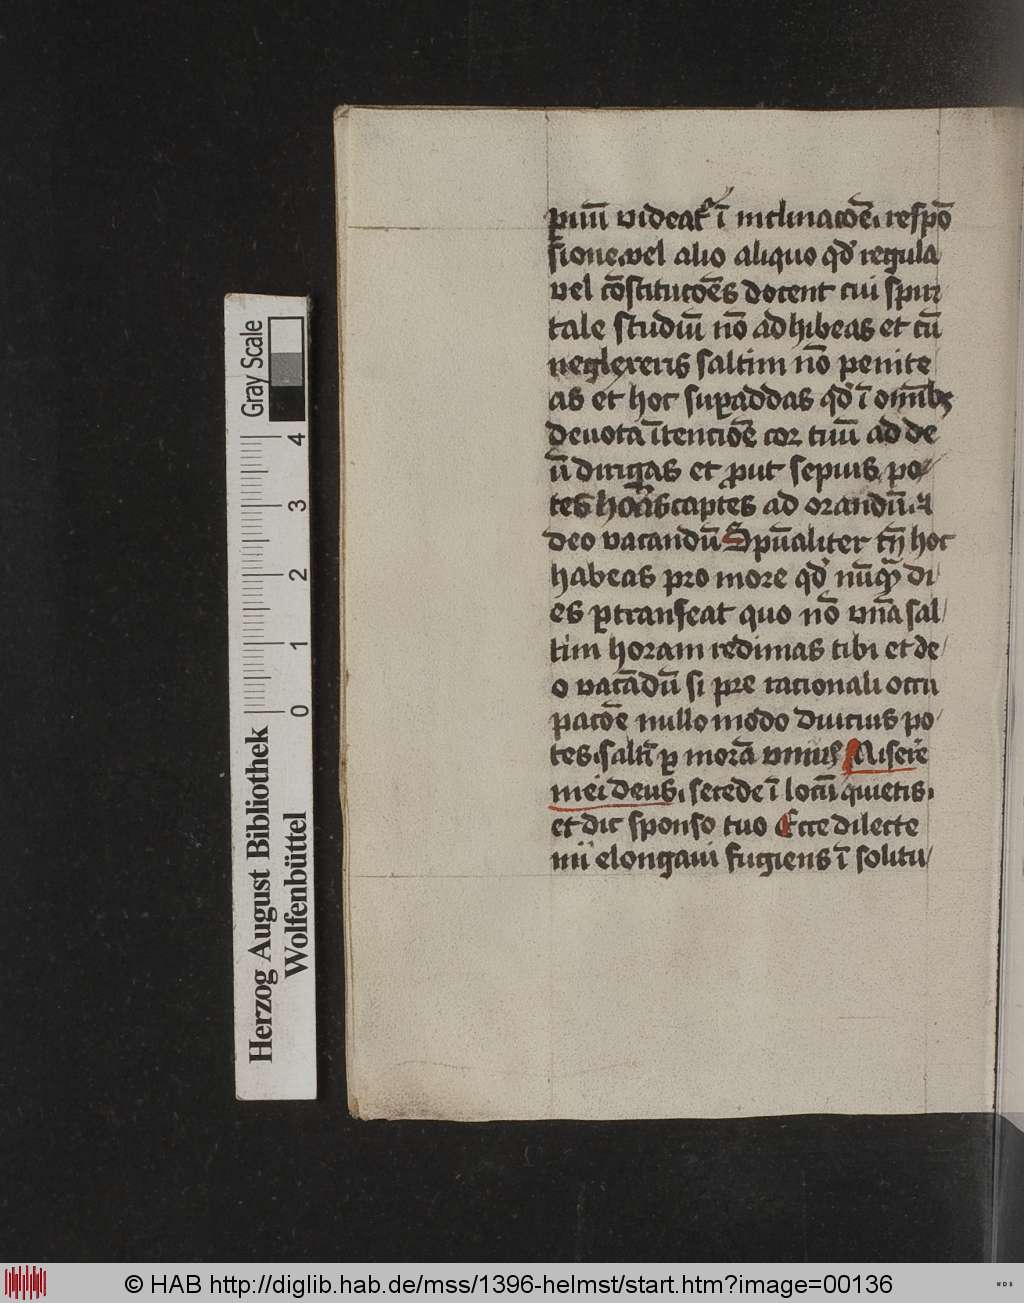 p̲iuū videat᷑ ī inclinacōe. respō
sione. vel alio aliquo qd̕ regula
vel cōstitucōes docent cui spūr
tale studiū nō adhibeas et cū
neglexeris saltim nō penite
as et hoc suꝑaddas qd̕ ī omībꝫ
deuota ītencōe cor tuū ad de
ū dirigas et ꝓut sepius po-
tes horās captes ad orandū. ⁊
deo vacandū Spūaliter tn̄ hoc
habeas pro more qd̕ nūqᷓ di
es ꝑtranseat quo nō vnā sal/
tim horam redimas tibi et de/
o vacādū si pre racionali occu
pacōe nullo modo diucius po/
tes. saltī ꝑ morā vnius Miserē
mei deus. secede ī locū quietis.
et dic sponso tuo Ecce dilecte
mi elongaui fugiens ī solitu/
Gray Scale
0 1 2 3 4
Herzog August Bibliothek
Wolfenbüttel
© HAB http://diglib.hab.de/mss/1396-helmst/start.htm?image=00136
WDB